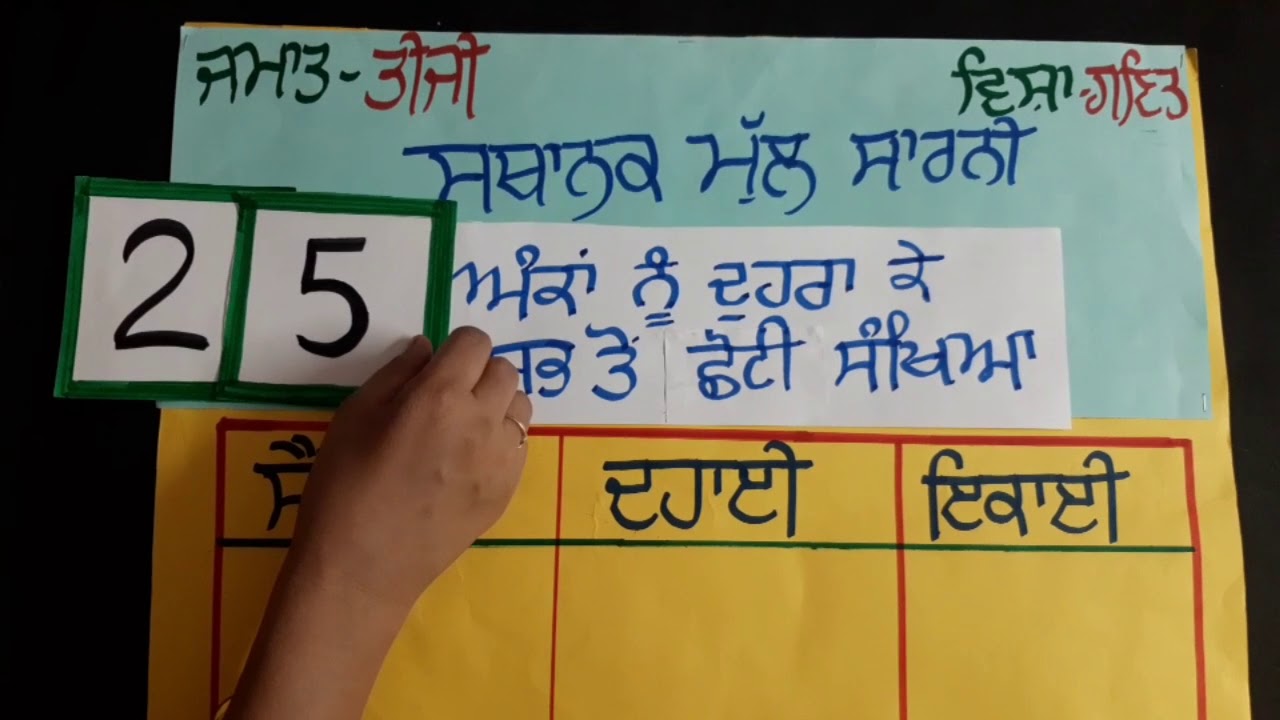 ਜਮਾਤ-ਤੀਜੀ
ਵਿਸ਼ਾ-ਗਣਿਤ
ਸਥਾਨਕ ਮੁੱਲ ਸਾਰਨੀ
2 5
ਅੰਕਾਂ ਨੂੰ ਦੁਹਰਾ ਕੇ
ਤੋਂ ਛੋਟੀ ਸੰਖਿਆ
ਦਹਾਈ ਇਕਾਈ